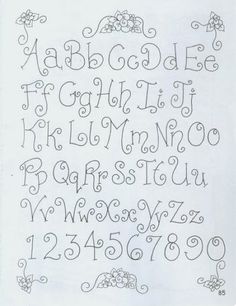 AaBbCcDdEe
FfGgHhIiJj
KkLlMmNnOo
PpQqRrSsTtUu
VvWwXxYyZz
1234567890
85